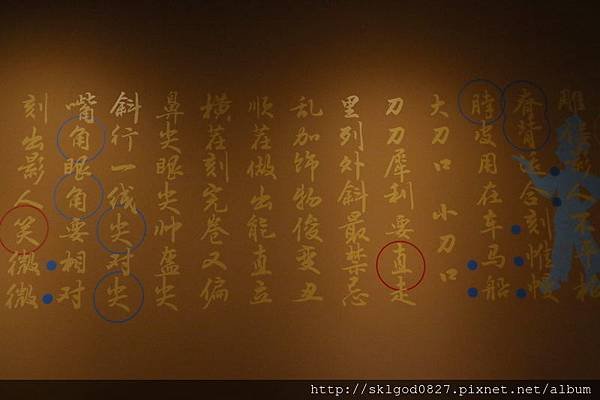 雕影人不
脊背合刻帷幔
脖皮用在车马船
大刀口 小刀口
刀刀犀利要直走
里列外斜最禁忌
乱加饰物俊变丑
顺茬做出能直立
横茬刻完卷又偏
鼻尖眼尖帅盔尖
斜行一线尖对尖
嘴角眼角要相对
刻出影人笑微微
http://sklgod0827.pixnet.net/album